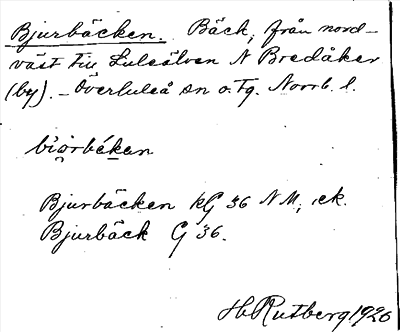 Bjurbäcken. Bäck, från nord-
väst till Luleälven N Bredåker
(by). - Överluleå sn o. tg. Norrb. l.
biörbéken
Bjurbäcken kG 36 NM, ek.
Bjurbäck G 36.
H Rutberg 1926